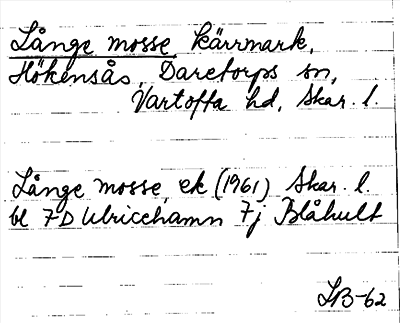 Långe mosse, kärrmark,
Hökensås, Daretorps sn,
Vartofta hd, Skar. l.
Långe mosse, ek (1961) Skar. l.
bl 7D Ulricehamn 7j Blåhult
LB-62